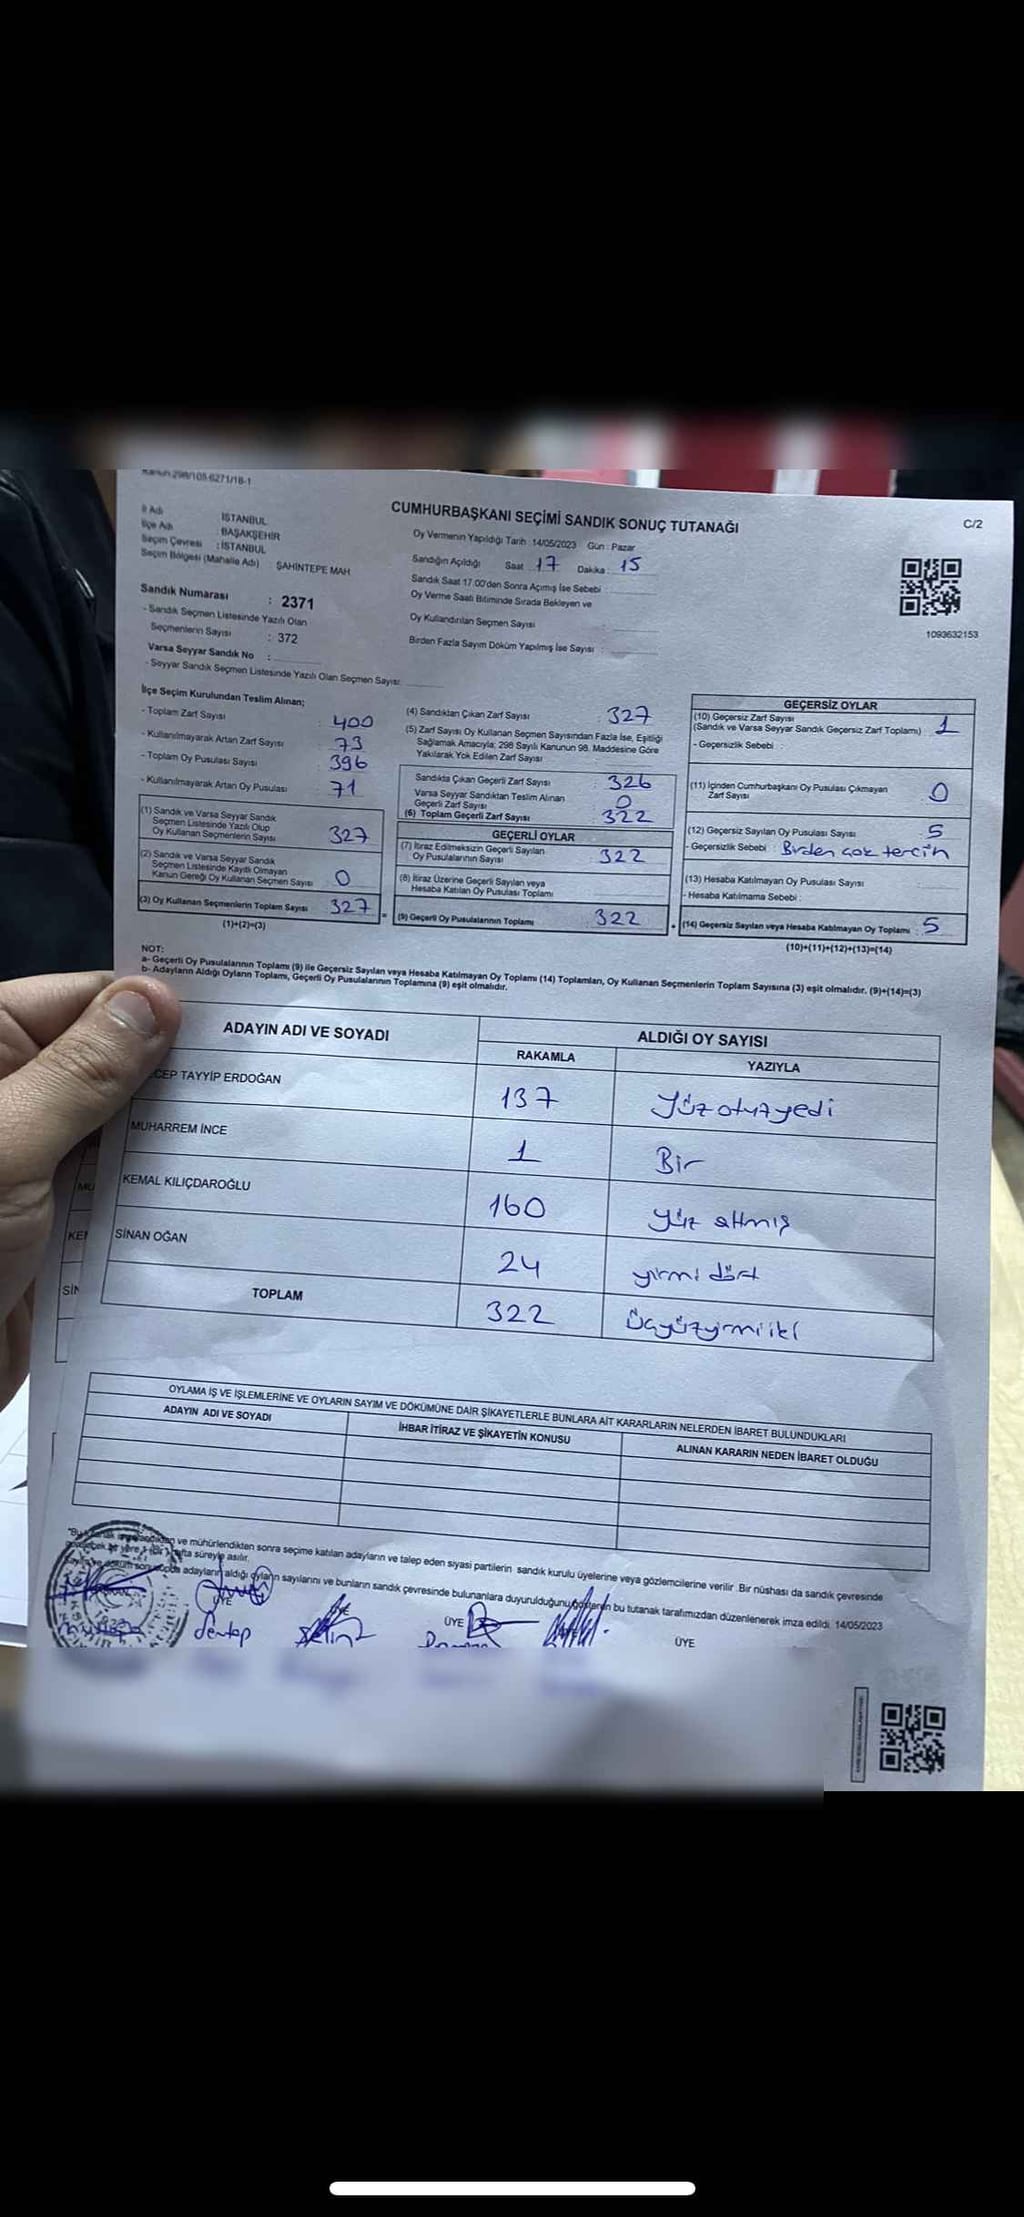 Kanun:298/105.6271/18-1
CUMHURBAŞKANI SEÇİMİ SANDIK SONUÇ TUTANAĞI
C/2
İl Adı : İSTANBUL
İlçe Adı : BAŞAKŞEHİR
Seçim Çevresi : İSTANBUL
Seçim Bölgesi (Mahalle Adı) ŞAHİNTEPE MAH
Oy Vermenin Yapıldığı Tarih :14/05/2023 Gün : Pazar
Sandığın Açıldığı Saat 17 Dakika : 15
Sandık Saat 17:00'den Sonra Açılmış İse Sebebi :
Oy Verme Saati Bitiminde Sırada Bekleyen ve
Oy Kullandırılan Seçmen Sayısı :
Birden Fazla Sayım Döküm Yapılmış İse Sayısı :
1093632153
Sandık Numarası : 2371
- Sandık Seçmen Listesinde Yazılı Olan
Seçmenlerin Sayısı : 372
Varsa Seyyar Sandık No :
- Seyyar Sandık Seçmen Listesinde Yazılı Olan Seçmen Sayısı:
İlçe Seçim Kurulundan Teslim Alınan;
- Toplam Zarf Sayısı : 400
- Kullanılmayarak Artan Zarf Sayısı : 73
- Toplam Oy Pusulası Sayısı : 396
- Kullanılmayarak Artan Oy Pusulası : 71
(1) Sandık ve Varsa Seyyar Sandık
Seçmen Listesinde Yazılı Olup
Oy Kullanan Seçmenlerin Sayısı : 327
(2) Sandık ve Varsa Seyyar Sandık
Seçmen Listesinde Kayıtlı Olmayan
Kanun Gereği Oy Kullanan Seçmen Sayısı : 0
(3) Oy Kullanan Seçmenlerin Toplam Sayısı : 327
(1)+(2)=(3)
(4) Sandıktan Çıkan Zarf Sayısı : 327
(5) Zarf Sayısı Oy Kullanan Seçmen Sayısından Fazla İse, Eşitliği
Sağlamak Amacıyla; 298 Sayılı Kanunun 98. Maddesine Göre
Yakılarak Yok Edilen Zarf Sayısı :
Sandıkta Çıkan Geçerli Zarf Sayısı : 326
Varsa Seyyar Sandıktan Teslim Alınan
Geçerli Zarf Sayısı : 0
(6) Toplam Geçerli Zarf Sayısı : 322
GEÇERLİ OYLAR
(7) İtiraz Edilmeksizin Geçerli Sayılan
Oy Pusulalarının Sayısı : 322
(8) İtiraz Üzerine Geçerli Sayılan veya
Hesaba Katılan Oy Pusulası Toplamı :
(9) Geçerli Oy Pusulalarının Toplamı : 322
GEÇERSİZ OYLAR
(10) Geçersiz Zarf Sayısı
(Sandık ve Varsa Seyyar Sandık Geçersiz Zarf Toplamı) : 1
- Geçersizlik Sebebi :
(11) İçinden Cumhurbaşkanı Oy Pusulası Çıkmayan
Zarf Sayısı : 0
(12) Geçersiz Sayılan Oy Pusulası Sayısı : 5
- Geçersizlik Sebebi : Birden çok tercih
(13) Hesaba Katılmayan Oy Pusulası Sayısı :
- Hesaba Katılmama Sebebi :
(14) Geçersiz Sayılan veya Hesaba Katılmayan Oy Toplamı : 5
(10)+(11)+(12)+(13)=(14)
NOT:
a- Geçerli Oy Pusulalarının Toplamı (9) ile Geçersiz Sayılan veya Hesaba Katılmayan Oy Toplamı (14) Toplamları, Oy Kullanan Seçmenlerin Toplam Sayısına (3) eşit olmalıdır. (9)+(14)=(3)
b- Adayların Aldığı Oyların Toplamı, Geçerli Oy Pusulalarının Toplamına (9) eşit olmalıdır.
ADAYIN ADI VE SOYADI
ALDIĞI OY SAYISI
RAKAMLA
YAZIYLA
CEP TAYYİP ERDOĞAN 137 Yüz otuz yedi
MUHARREM İNCE 1 Bir
KEMAL KILIÇDAROĞLU 160 yüz altmış
SİNAN OĞAN 24 yirmi dört
TOPLAM 322 Üçyüzyirmiiki
MU
KEI
SİN
OYLAMA İŞ VE İŞLEMLERİNE VE OYLARIN SAYIM VE DÖKÜMÜNE DAİR ŞİKAYETLERLE BUNLARA AİT KARARLARIN NELERDEN İBARET BULUNDUKLARI
ADAYIN ADI VE SOYADI
İHBAR İTİRAZ VE ŞİKAYETİN KONUSU
ALINAN KARARIN NEDEN İBARET OLDUĞU
ve mühürlendikten sonra seçime katılan adayların ve talep eden siyasi partilerin sandık kurulu üyelerine veya gözlemcilerine verilir .Bir nüshası da sandık çevresinde
hafta süreyle asılır.
adayların aldığı oyların sayılarını ve bunların sandık çevresinde bulunanlara duyurulduğunu gösteren bu tutanak tarafımızdan düzenlenerek imza edildi. 14/05/2023
ÜYE
ÜYE
ÜYE